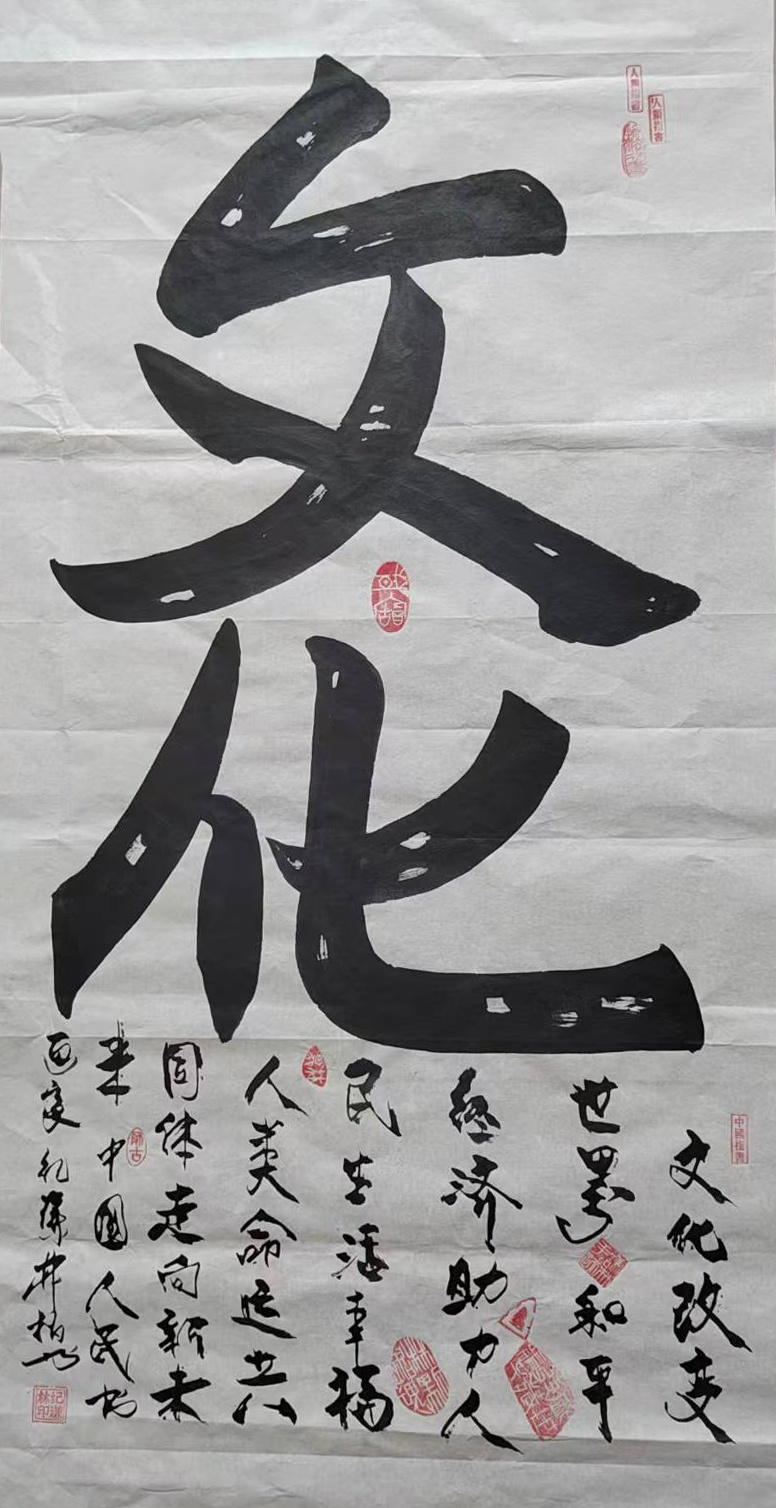 文化
文化改变
世界和平
经济助力人
民生活幸福
人类命运共
同体走向新未
来 中国人民书
纪汉林印
师古
中国指书